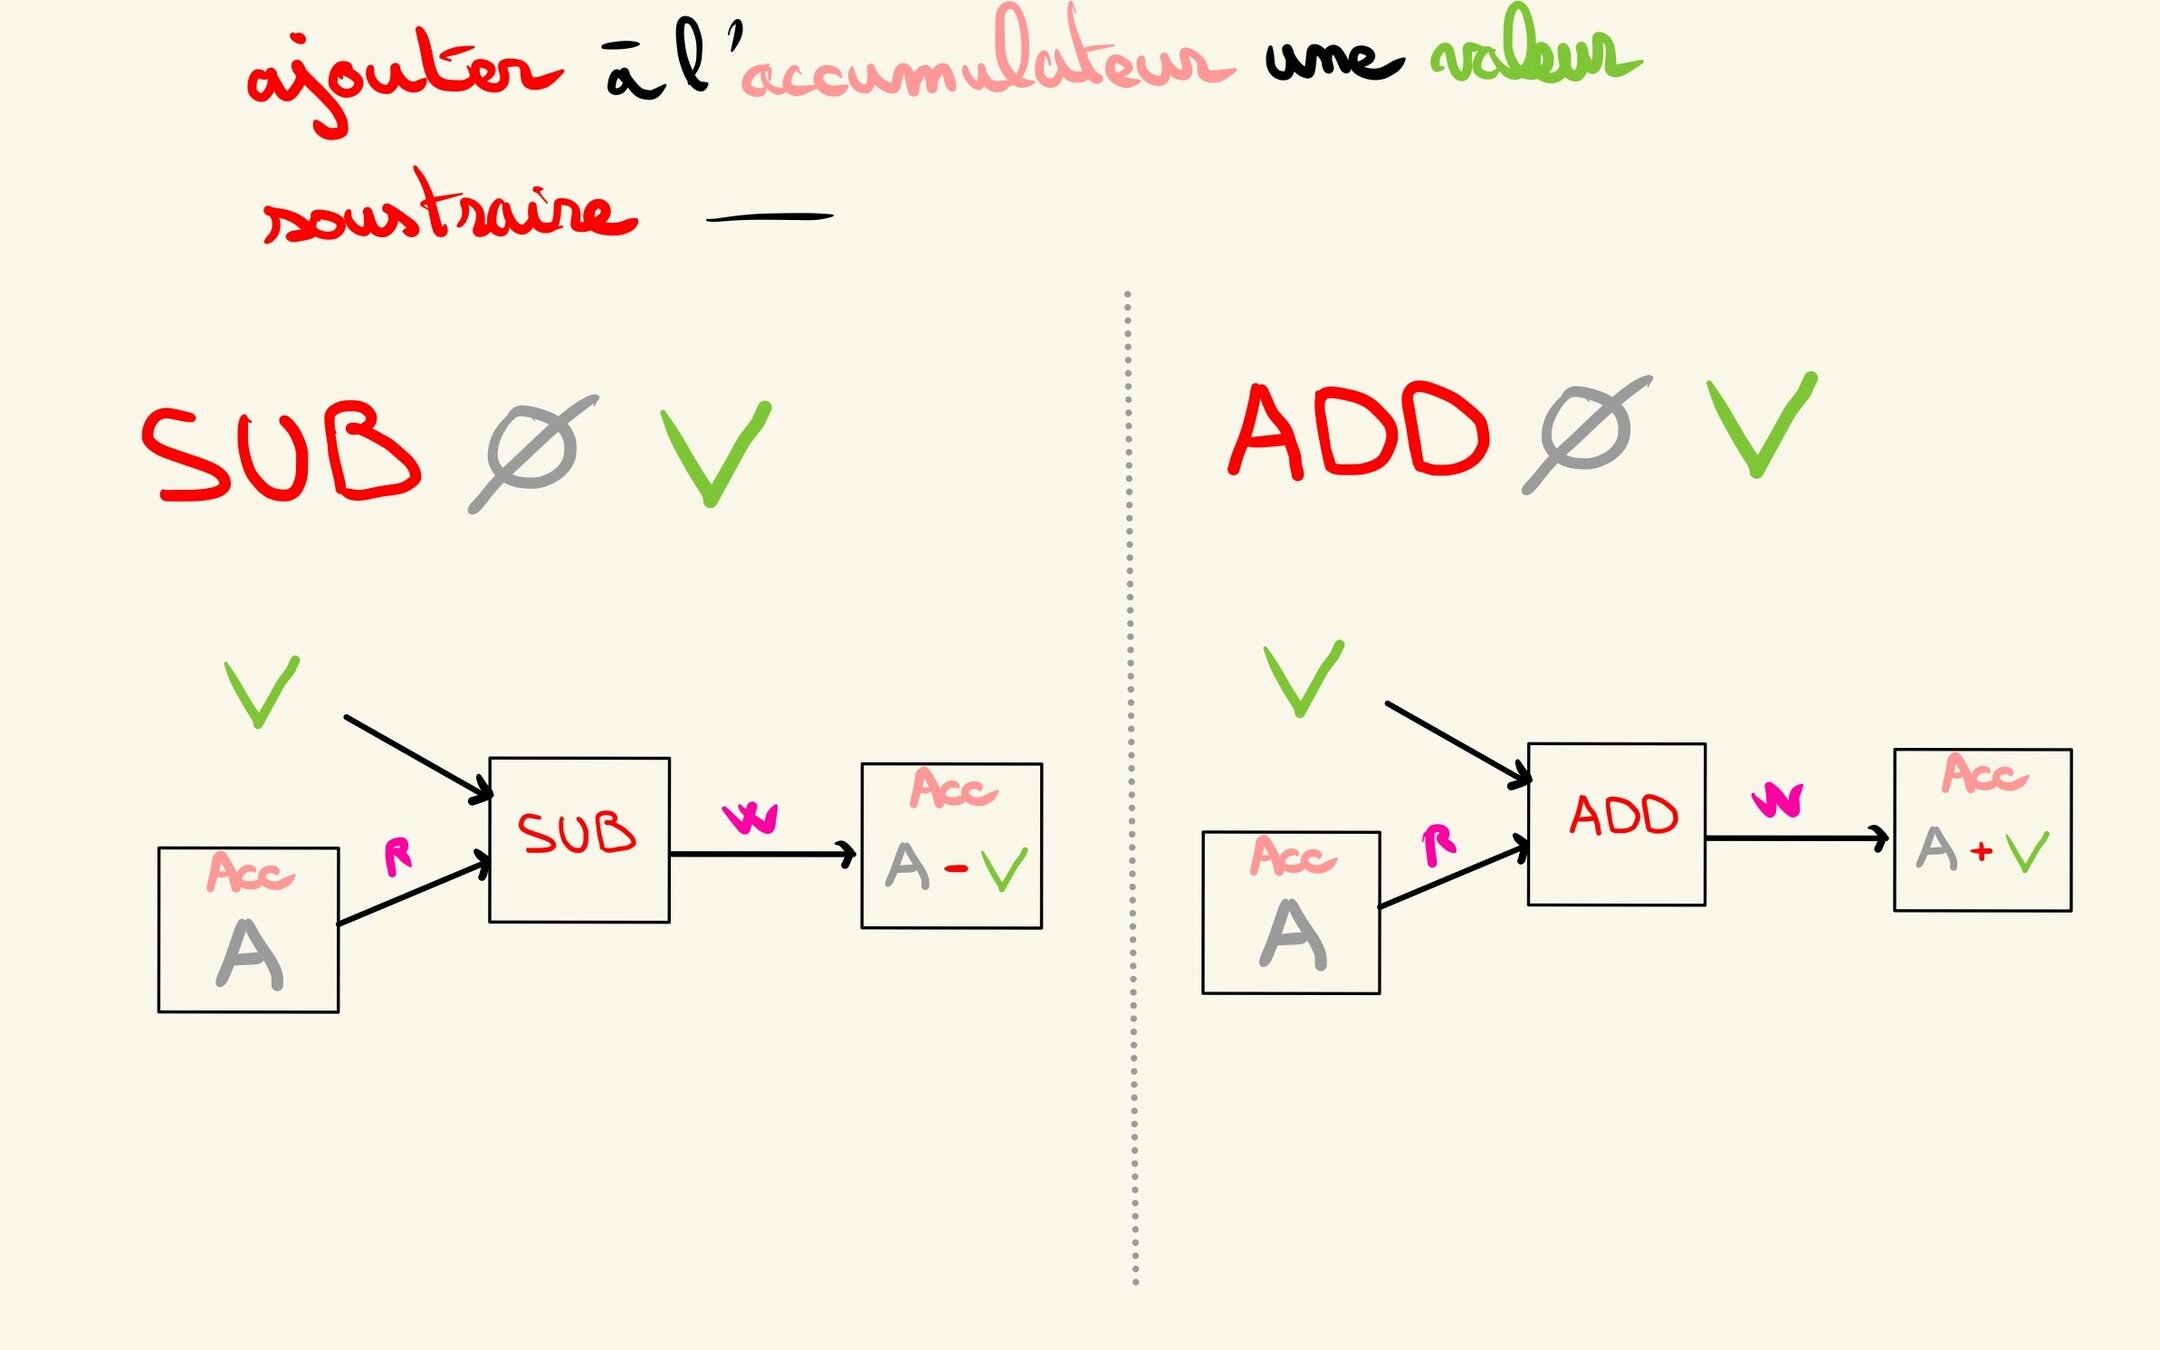 ajouter à l'accumulateur une valeur
soustraire —
SUB Ø V
V
R
Acc
A
SUB
W
Acc
A - V
ADD Ø V
V
R
Acc
A
ADD
W
Acc
A + V